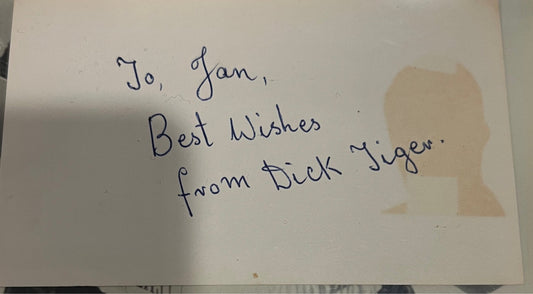 To, Jan,
Best Wishes
from Dick Tiger.